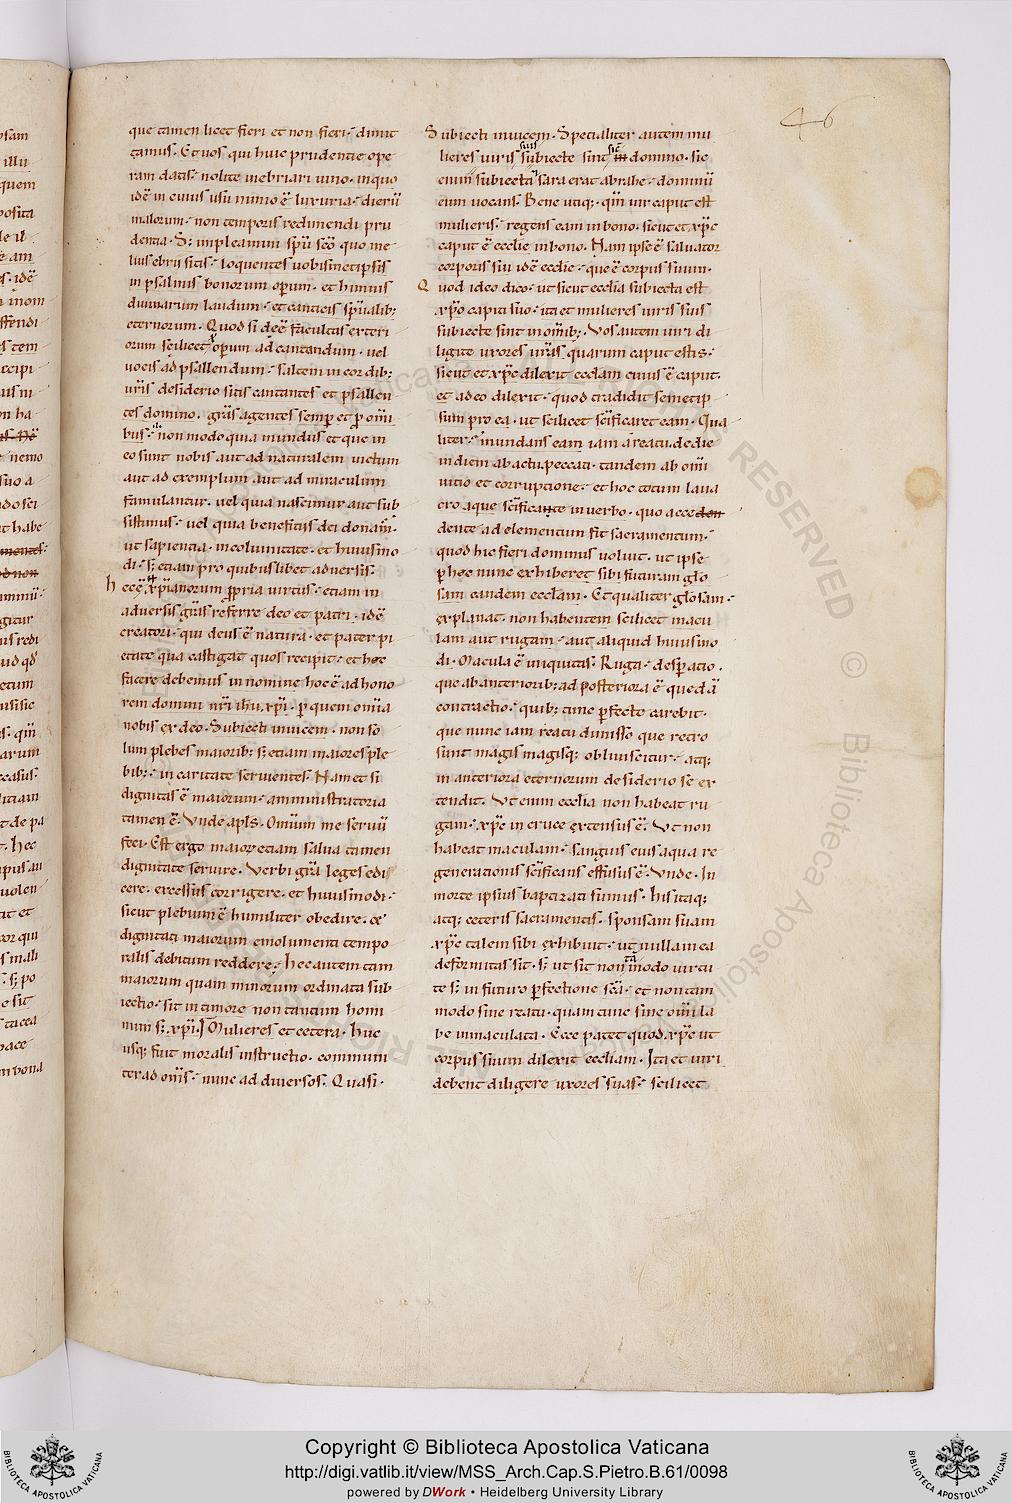 46
que tamen licet fieri et non fieri. dimit
tamus. Et uos qui huic prudentie ope
ram datis. nolite inebriari uino. in quo
idē in cuius usu nimio ē luxuria. dierū
malorum. non temporis redimendi pru
dentia. S; impleamini spū scō quo me
lius ebrii sitis. loquentes uobismetipsis
in psalmis bonorum opum. et himnis
diuinarum laudum. et canticis spūalib;
eternorum. Quod si deē facultas exteri
orum scilicet opum ad cantandum. uel
uocis ad psallendum. saltem in cordib;
uris desiderio sitis cantantes et psallen
tes domino. grās agentes semp et p omi
bus. non modo quia mundus et que in
eo sunt nobis aut ad naturalem uictum
aut ad exemplum aut ad miraculum
famulantur. uel quia nascimur aut sub
sistimus. uel quia beneficiis dei donam̄.
ut sapientia. incolumitate. et huiusmo
di. s; etiam pro quibuslibet aduersis.
hec ē xpianorum ppria uirtus. etiam in
aduersis grās referre deo et patri. idē
creatori. qui deus ē natura. et pater pi
etate qua castigat quos recipit. et hoc
facere debemus in nomine hoc ē ad hono
rem domini nri ihu xpi. p quem omia
nobis ex deo. Subiecti inuicem. non so
lum plebes maiorib; s; etiam maiores ple
bib;. in caritate seruientes. Nam et si
dignitas ē maiorum. amministratoria
tamen ē. Vnde apls. Omiūm me seruū
feci. Est ergo maior etiam salua tamen
dignitate seruire. Verbi grā leges edi
cere. excessus corrigere. et huiusmodi.
sicut plebium ē humiliter obedire. &
dignitati maiorum emolumenti tempo
ralis debitum reddere. hec autem tam
maiorum quam minorum ordinata sub
iectio. sit in timore non tantum homi
num s; xpi. Mulieres et cetera. huc
usq; fuit moralis instructio. communi
ter ad omis. nunc ad diuersos. Quasi.
Subiecti inuicem. Specialiter autem mu
lieres uiris suis subiecte sint sic domino. sic
enim subiecta sara erat abrahe. dominū
eum uocans. Bene utiq;. qm uir caput est
mulieris. regens eam in bono. sicut et xpc
caput ē ecclie in bono. Nam ipse ē saluator
corporis sui idē ecclie. que ē corpus suum.
Quod ideo dico. ut sicut ecclia subiecta est
xpo capiti suo. ita et mulieres uiris suis
subiecte sint in omib;. Vos autem uiri di
ligite uxores uras quarum caput estis.
sicut et xpc dilexit ecclam cuius ē caput.
et adeo dilexit. quod tradidit semetip
sum pro ea. ut scilicet scificaret eam. Qua
liter. mundans eam iam a reatu. de die
in diem ab actu peccati. tandem ab omi
uitio et corruptione. et hoc totum laua
cro aque scificante in uerbo. quo acce
dente ad elementum fit sacramentum.
quod hic fieri dominus uoluit. ut ipse
p hoc nunc exhiberet sibi futuram glo
sam eandem ecclam. Et qualiter glosam.
explanat. non habentem scilicet macu
lam aut rugam. aut aliquid huiusmo
di. Macula ē iniquitas. Ruga. desperatio.
que ab anteriorib; ad posteriora ē quedā
contractio. quib; tunc pfecte carebit.
que nunc iam reatu dimisso que retro
sunt magis magisq; obliuiscitur. atq;
in anteriora eternorum desiderio se ex
tendit. Vt enim ecclia non habeat ru
gam. xpc in cruce extensus ē. Vt non
habeat maculam. sanguis eius aqua re
generationis scificans effusus ē. Vnde. In
morte ipsius baptizati sumus. his itaq;
atq; ceteris sacramentis. sponsam suam
xpc talem sibi exhibuit. ut nulla in ea
deformitas sit. s; ut sit non tā modo uirtu
te s; in futuro pfectione scā. et non tam
modo sine reatu. quam tunc sine omi la
be immaculata. Ecce patet quod xpc ut
corpus suum dilexit eccliam. Ita et uiri
debent diligere uxores suas. scilicet
Copyright © Biblioteca Apostolica Vaticana
http://digi.vatlib.it/view/MSS_Arch.Cap.S.Pietro.B.61/0098
powered by DWork • Heidelberg University Library